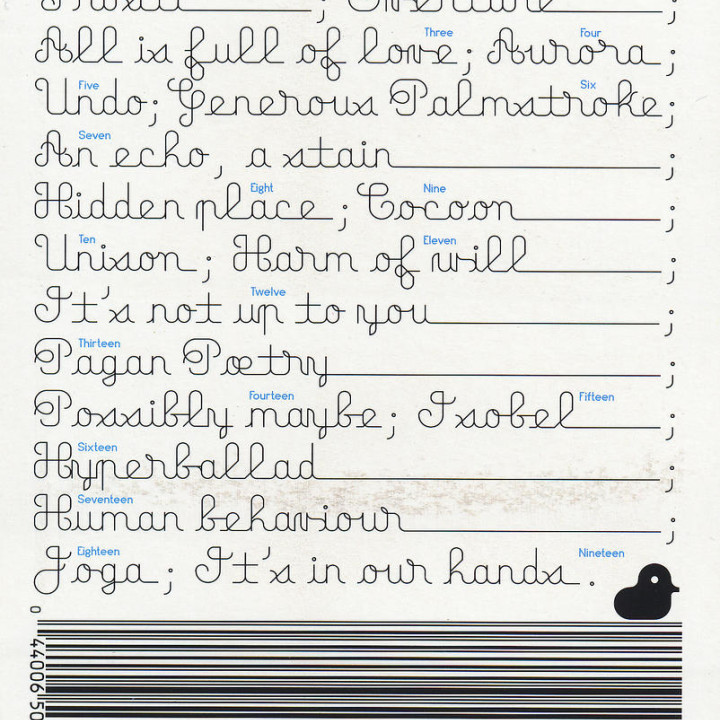 ; Overture ;
Three Four
All is full of love; Aurora ;
Five Six
Undo; Generous Palmstroke;
Seven
An echo, a stain ;
Eight Nine
Hidden place ; Cocoon ;
Ten Eleven
Unison ; Harm of will ;
Twelve
It's not up to you ;
Thirteen
Pagan Poetry ;
Fourteen Fifteen
Possibly maybe ; Isobel ;
Sixteen
Hyperballad ;
Seventeen
Human behaviour ;
Eighteen Nineteen
Joga ; It's in our hands .
0
44006 50